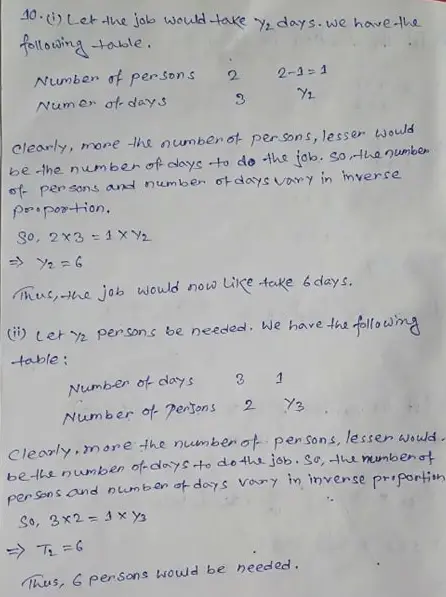 10. (i) Let the job would take y₂ days. we have the
following table.
Number of persons 2 2-1=1
Numer of days 3 y₂
Clearly, more the number of persons, lesser would
be the number of days to do the job. So, the number
of persons and number of days vary in inverse
proportion.
So, 2×3 = 1×y₂
⇒ y₂ = 6
Thus, the job would now like take 6 days.
(ii) Let y₂ persons be needed. We have the following
table:
Number of days 3 1
Number of persons 2 y₃
Clearly, more the number of persons, lesser would.
be the number of days to do the job. So, the number of
persons and number of days vary in inverse proportion
So, 3×2 = 1×y₃
⇒ T₂ = 6
Thus, 6 persons would be needed.